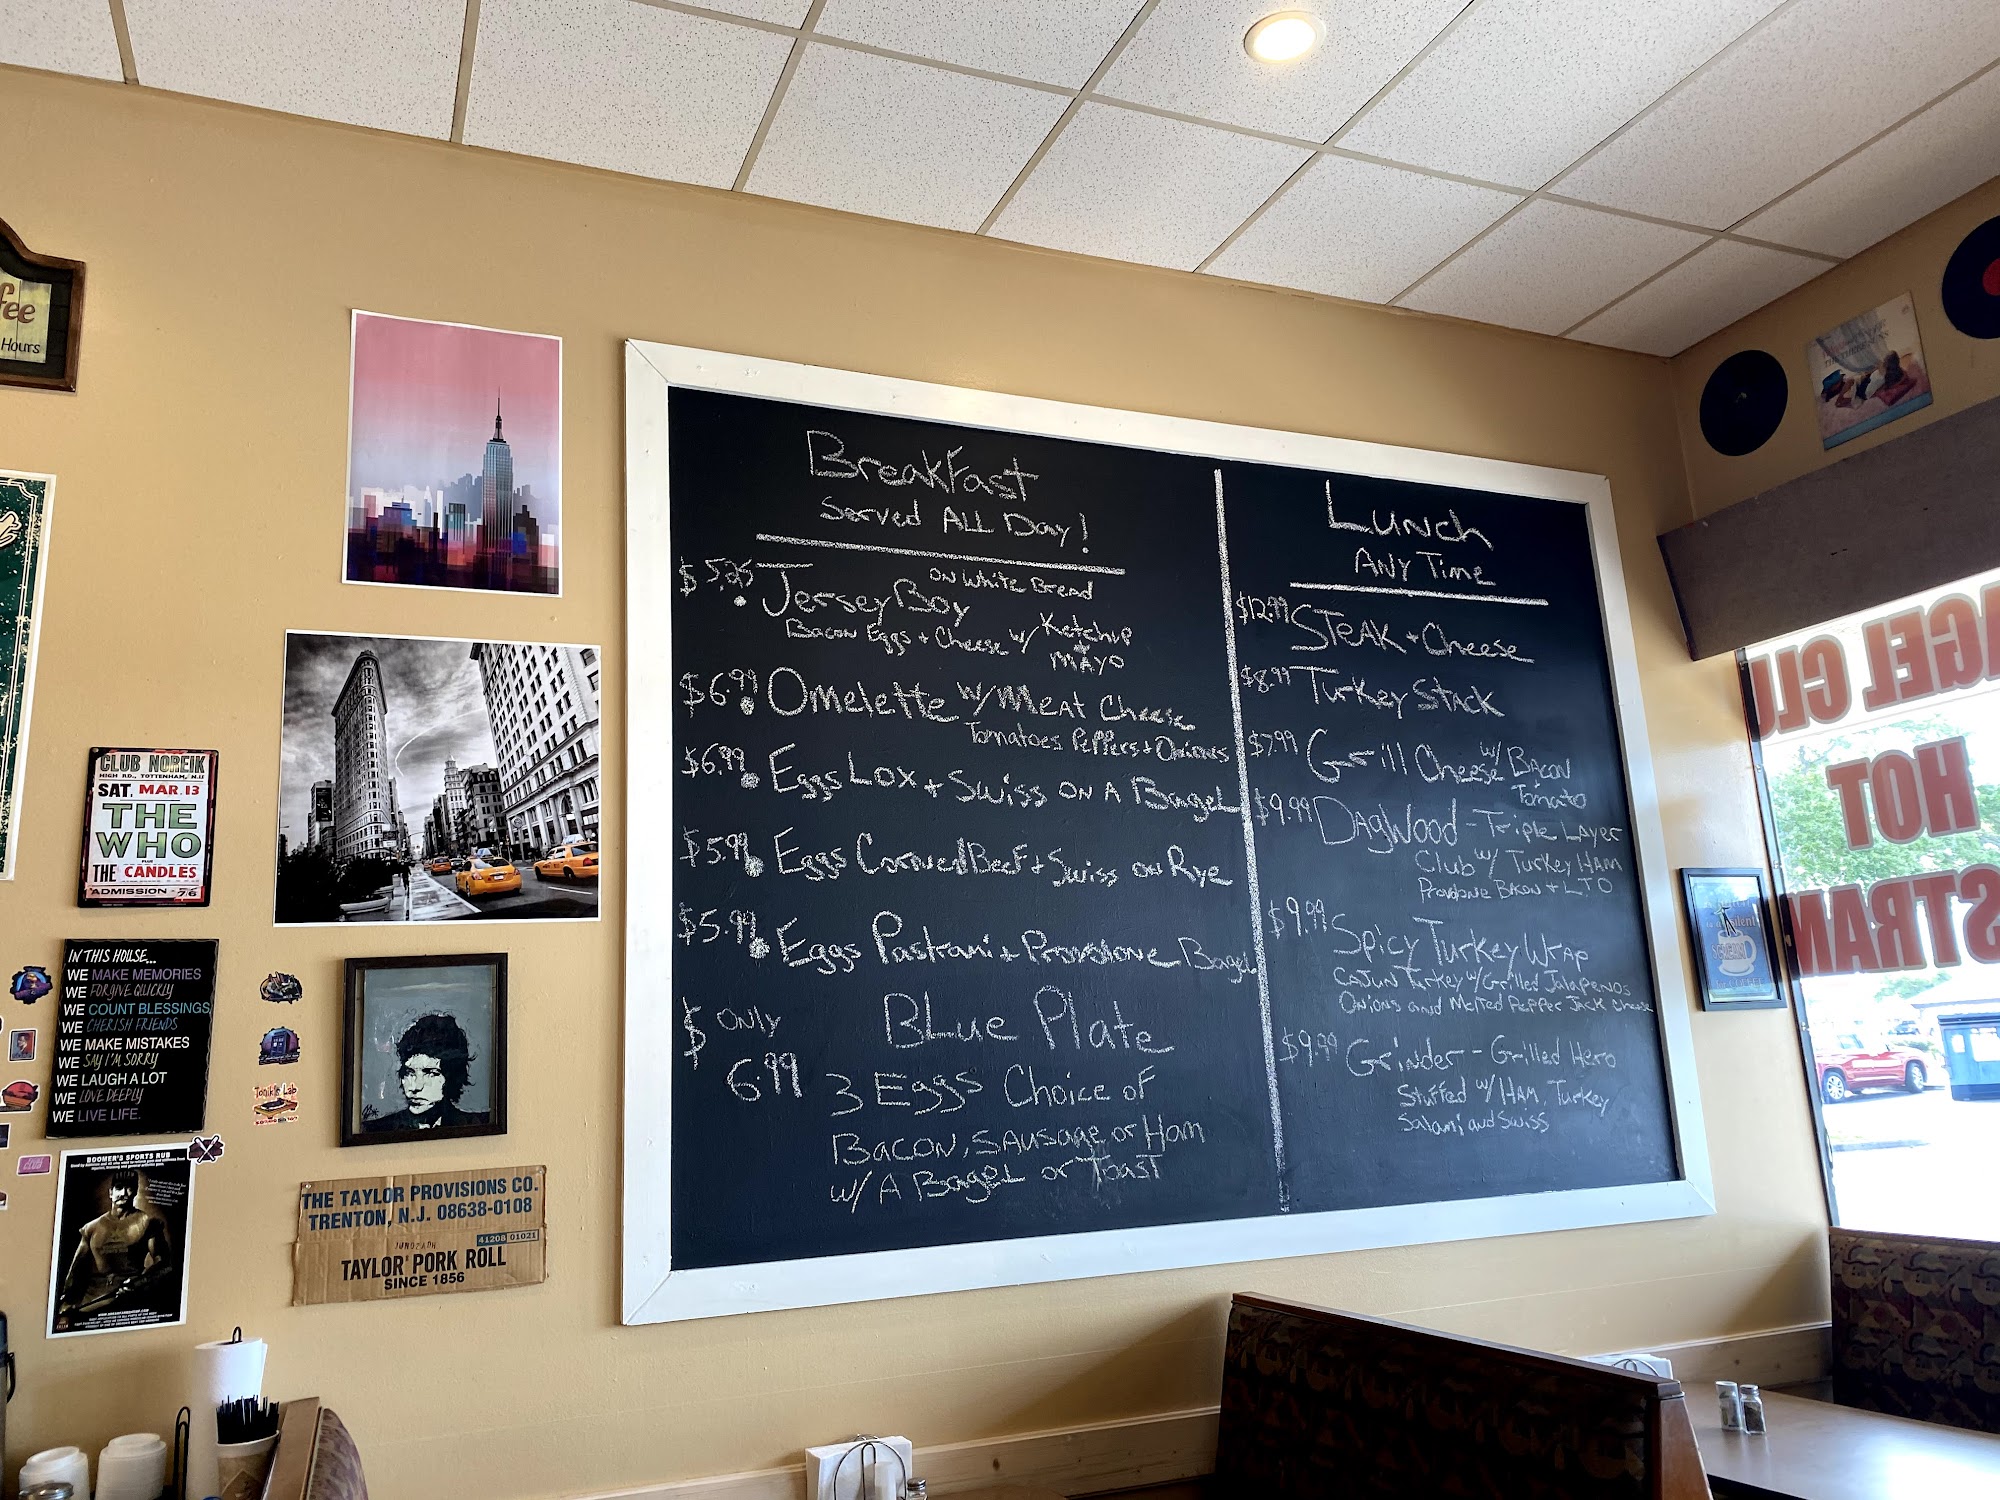 fee
Hours
CLUB NOREIK
HIGH RD., TOTTENHAM, N.15
SAT. MAR. 13
THE
WHO
PLUS
THE CANDLES
ADMISSION - 7/6
IN THIS HOUSE...
WE MAKE MEMORIES
WE FORGIVE QUICKLY
WE COUNT BLESSINGS
WE CHERISH FRIENDS
WE MAKE MISTAKES
WE SAY I'M SORRY
WE LAUGH A LOT
WE LOVE DEEPLY
WE LIVE LIFE.
BOOMER'S SPORTS RUB
Tonik's Lab
THE TAYLOR PROVISIONS CO.
TRENTON, N.J. 08638-0108
41208 01021
TAYLOR PORK ROLL
SINCE 1856
BreakFast
Served ALL Day!
$5.25 Jersey Boy on White Bread
Bacon Eggs + Cheese w/ Ketchup
+ MAYO
$6.99 Omelette w/ Meat Cheese
Tomatoes Peppers + Onions
$6.99 Eggs Lox + Swiss on A Bagel
$5.99 Eggs Corned Beef + Swiss on Rye
$5.99 Eggs Pastrami + Provolone Bagel
$ only Blue Plate
6.99 3 Eggs Choice of
Bacon, Sausage or Ham
w/ A Bagel or Toast
Lunch
Any Time
$12.99 Steak + Cheese
$8.99 Turkey Stack
$7.99 Grill Cheese w/ Bacon
Tomato
$9.99 Dagwood - Triple Layer
Club w/ Turkey Ham
Provolone Bacon + LTO
$9.99 Spicy Turkey Wrap
Cajun Turkey w/ Grilled Jalapenos
Onions and Melted Pepper Jack Cheese
$9.99 Grinder - Grilled Hero
Stuffed w/ Ham, Turkey
Salami and Swiss
AGEL CLU
HOT
STRAN